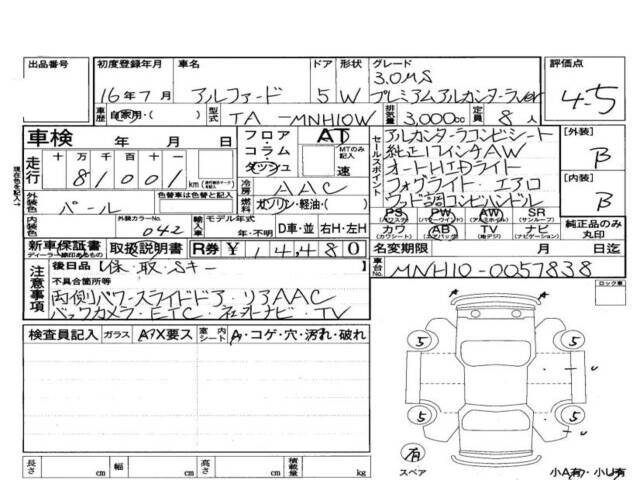 出品番号 初度登録年月 車名 ドア 形状 グレード 評価点
16年7月 アルファード 5 W 3.0MS
プレミアムアルカンターラver
4-5
車歴 自家用・( ) 型式 TA-MNH10W 排気量 3,000cc 定員 8人
車検 年 月 日 フロア・コラム・ダッシュ AT MTのみ記入 速
セールスポイント アルカンターラコンビシート
純正17インチAW
オートHIDライト
フォグライト・エアロ
ウッド調コンビハンドル
[外装] B
[内装] B
走行 十 万 千 百 十 一
81001 km
冷房 AAC
外装色 パール 色替車は色替と記入 燃料 ガソリン・軽油・( )
内装色 外装カラーNo. 042 輸入車 モデル年式 年・不明 D車・並 右H・左H
PS (パワステ) PW (パワーウインド) AW (アルミホイル) SR (サンルーフ)
カワ (カワシート) AB (エアバッグ) TV (地デジ) ナビ (ナビゲーション)
純正品のみ丸印
新車保証書 ディーラー捺印あるもの 取扱説明書 R券 ¥14480
名変期限 月 日迄
注意事項 後日品 保・取・Sキー
車台No. MNH10-0057838
不具合箇所等
両側パワースライドドア・リアAAC
バックカメラ・ETC・ナビ・TV
ロック車
検査員記入 ガラス A・X要ス 室内シート A・コゲ・穴・汚れ・破れ
5 5
5 5
有
スペア
小A有・小U有
長さ cm 幅 cm 高さ cm 積載量 kg